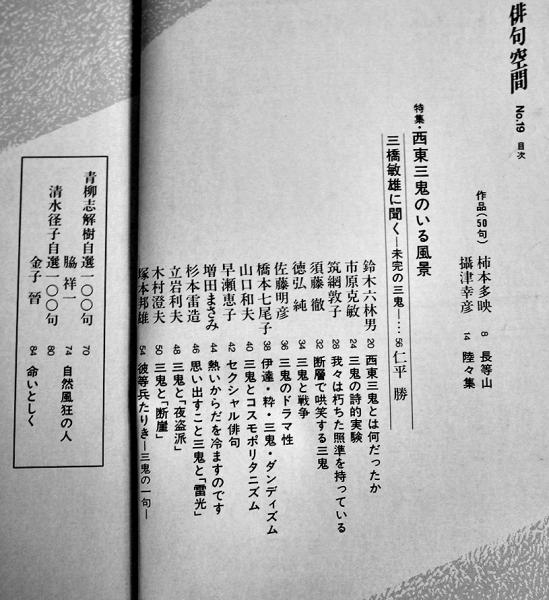 俳句空間 No.19 目次
作品(50句) 柿本多映 8 長等山
攝津幸彦 14 陸々集
特集・西東三鬼のいる風景
三橋敏雄に聞く―未完の三鬼―…56 仁平 勝
鈴木六林男 20 西東三鬼とは何だったか
市原克敏 24 三鬼の詩的実験
筑網敦子 28 我々は朽ちた照準を持っている
須藤 徹 32 断層で哄笑する三鬼
徳弘 純 34 三鬼と戦争
佐藤明彦 36 三鬼のドラマ性
橋本七尾子 38 伊達・粋・三鬼・ダンディズム
山口和夫 40 三鬼とコスモポリタニズム
早瀬恵子 42 セクシャル俳句
増田まさみ 44 熱いからだを冷ますのです
杉本雷造 46 思い出すこと三鬼と「雷光」
立岩利夫 48 三鬼と「夜盗派」
木村澄夫 50 三鬼と「断崖」
塚本邦雄 54 彼等兵たりき―三鬼の一句―
青柳志解樹自選一〇〇句 70
脇 祥一 74 自然風狂の人
清水径子自選一〇〇句 80
金子 晉 84 命いとしく